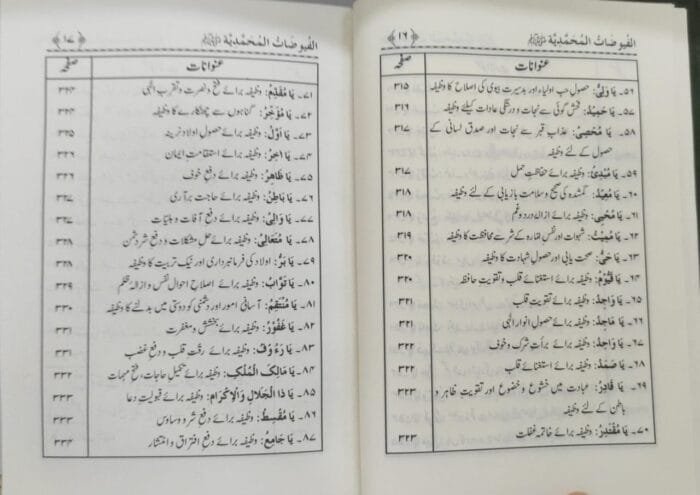 الفیوضات المحمدیۃ ﷺ ﴿۱۶﴾
عنوانات صفحہ
۵۶۔ یَا وَلِیُّ: حصولِ حب اولیاء اور بدسیرت بیوی کی اصلاح کا وظیفہ ۳۱۵
۵۷۔ یَا حَمِیْدُ: فحش گوئی سے نجات و درستگی عادات کیلئے وظیفہ ۳۱۶
۵۸۔ یَا مُحْصِیْ: عذاب قبر سے نجات اور صدق لسانی کے ۳۱۷
حصول کے لئے وظیفہ
۵۹۔ یَا مُبْدِئُ: وظیفہ برائے حفاظتِ حمل ۳۱۷
۶۰۔ یَا مُعِیْدُ: گمشدہ کی صحیح و سلامت بازیابی کے لئے وظیفہ ۳۱۸
۶۱۔ یَا مُحْیِیْ: وظیفہ برائے ازالہ درد و غم ۳۱۸
۶۲۔ یَا مُمِیْتُ: شہوات اور نفسِ امارہ کے شر سے محافظت کا وظیفہ ۳۱۹
۶۳۔ یَا حَیُّ: صحت یابی اور حصولِ شہادت کا وظیفہ ۳۱۹
۶۴۔ یَا قَیُّوْمُ: وظیفہ برائے استغنائے قلب و تقویتِ حافظہ ۳۲۰
۶۵۔ یَا وَاجِدُ: وظیفہ برائے تقویتِ قلب ۳۲۱
۶۶۔ یَا مَاجِدُ: وظیفہ برائے حصولِ انوار الٰہی ۳۲۱
۶۷۔ یَا وَاحِدُ: وظیفہ برائے برأتِ شرک و خوف ۳۲۲
۶۸۔ یَا صَمَدُ: وظیفہ برائے استغنائے قلب ۳۲۲
۶۹۔ یَا قَادِرُ: عبادت میں خشوع و خضوع اور تقویتِ ظاہر و ۳۲۳
باطن کے لئے وظیفہ
۷۰۔ یَا مُقْتَدِرُ: وظیفہ برائے خاتمہ غفلت ۳۲۳
الفیوضات المحمدیۃ ﷺ ﴿۱۷﴾
عنوانات صفحہ
۷۱۔ یَا مُقَدِّمُ: وظیفہ برائے فتح و نصرت و تقرب الٰہی ۳۲۴
۷۲۔ یَا مُؤَخِّرُ: گناہوں سے چھٹکارے کا وظیفہ ۳۲۴
۷۳۔ یَا اَوَّلُ: وظیفہ برائے حصولِ اولاد نرینہ ۳۲۵
۷۴۔ یَا اٰخِرُ: وظیفہ برائے استقامتِ ایمان ۳۲۶
۷۵۔ یَا ظَاهِرُ: وظیفہ برائے دفعِ خوف ۳۲۶
۷۶۔ یَا بَاطِنُ: وظیفہ برائے حاجت برآری ۳۲۷
۷۷۔ یَا وَالِیْ: وظیفہ برائے دفعِ آفات و بلیات ۳۲۷
۷۸۔ یَا مُتَعَالِیْ: وظیفہ برائے حل مشکلات و دفعِ شر دشمن ۳۲۸
۷۹۔ یَا بَرُّ: اولاد کی فرمانبرداری اور نیک تربیت کا وظیفہ ۳۲۸
۸۰۔ یَا تَوَّابُ: وظیفہ برائے اصلاح احوالِ نفس و ازالۂ ظلم ۳۲۹
۸۱۔ یَا مُنْتَقِمُ: آسانی امور اور دشمنی کو دوستی میں بدلنے کا وظیفہ ۳۳۰
۸۲۔ یَا غَفُوْرُ: وظیفہ برائے بخشش و مغفرت ۳۳۱
۸۳۔ یَا رَءُوْفُ: وظیفہ برائے رقتِ قلب و دفعِ غضب ۳۳۱
۸۴۔ یَا مَالِکَ الْمُلْکِ: وظیفہ برائے تکمیلِ حاجات، فتح مہمات ۳۳۲
۸۵۔ یَا ذَا الْجَلَالِ وَالْاِکْرَامِ: وظیفہ برائے قبولیتِ دعا ۳۳۳
۸۶۔ یَا مُقْسِطُ: وظیفہ برائے دفعِ شر و وساوس ۳۳۳
۸۷۔ یَا جَامِعُ: وظیفہ برائے دفعِ افتراق و انتشار ۳۳۴